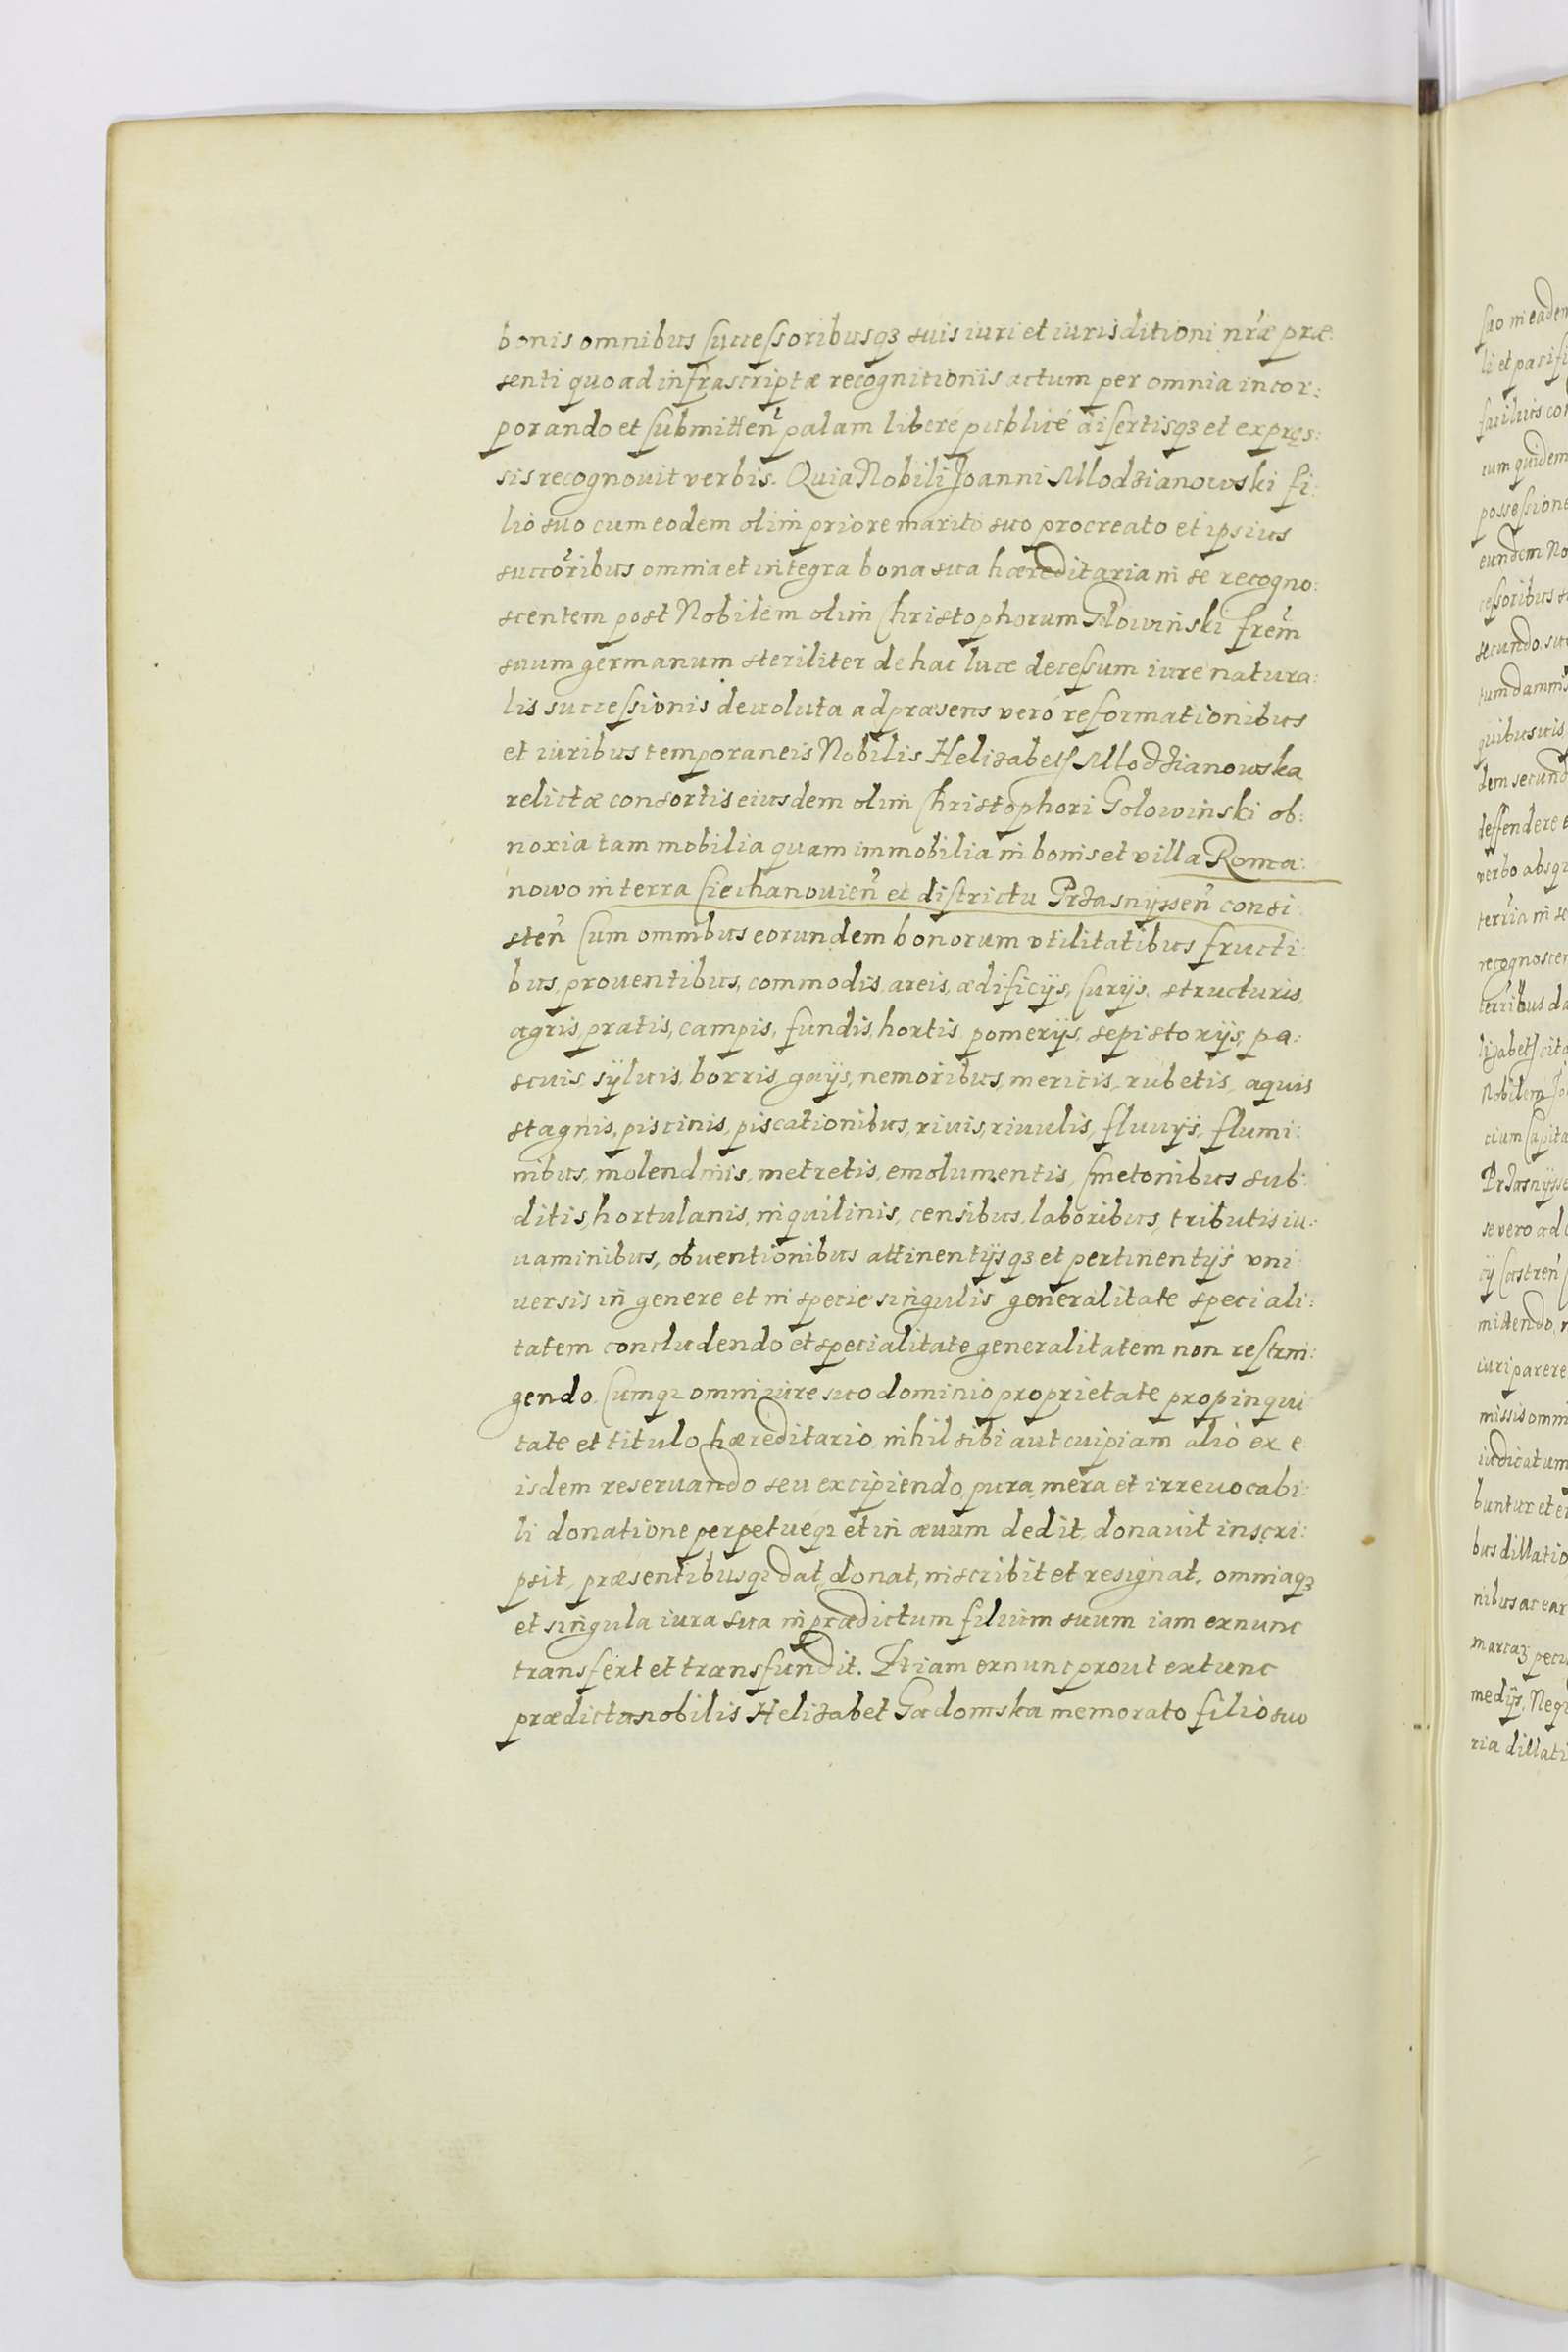 bonis omnibus successoribusqꝫ suis iuri et iurisditioni nr̃æ præ:
senti quo ad infrascriptæ recognitionis actum per omnia incor:
porando et submitten̉ palam liberé publicé disertisqꝫ et expręs:
sis recognouit verbis. Quia Nobili Joanni Mlodzianowski fi:
lio suo cum eodem olim priore marito suo procreato et ipsius
succoribus omnia et integra bona sua hæreditaria in se recogno:
scentem post Nobilem olim Christophorum Golowinski frem̃
suum germanum steriliter de hac luce decessum iure natura:
lis successionis deuoluta ad præsens veró reformationibus
et iuribus temporaneis Nobilis Helizabeth Mlodzianowska
relictæ consortis eiusdem olim Christophori Golowinski ob:
noxia tam mobilia quam immobilia in bonis et villa Roma:
nowo in terra Ciechanouien̉ et districtu Przasnyssen̉ consi:
sten̉ Cum omnibus eorundem bonorum vtilitatibus fructi:
bus, prouentibus, commodis, areis, ædificijs, Curijs, structuris,
agris, pratis, campis, fundis, hortis, pomerijs, sepistorijs, pa:
scuis, syluis, borris, gaijs, nemoribus, mericis, rubetis, aquis
stagnis, piscinis, piscationibus, riuis, riuulis, fluuijs, flumi:
nibus, molendinis, metretis, emolumentis, Cmetonibus sub:
ditis, hortulanis, inquilinis, censibus, laboribus, tributis iu:
uaminibus, obuentionibus attinentijsqꝫ et pertinentijs vni:
uersis in genere et in specie singulis generalitate speciali:
tatem concludendo et specialitate generalitatem non restrin:
gendo. Cumqꝫ omni iure suo dominio proprietate propinqui
tate et titulo hæreditario, nihil sibi aut cuipiam alio ex e
isdem reseruando seu excipiendo, pura, mera et irreuocabi:
li donatione perpetueqꝫ et in æuum dedit, donauit inscri:
psit, præsentibusqꝫ dat, donat, inscribit et resignat, omniaqꝫ
et singula iura sua in prædictum filium suum iam exnunc
transfert et transfundit. Et iam exnunc prout extunc
prædicta nobilis Helizabet Gadomska memorato filio suo